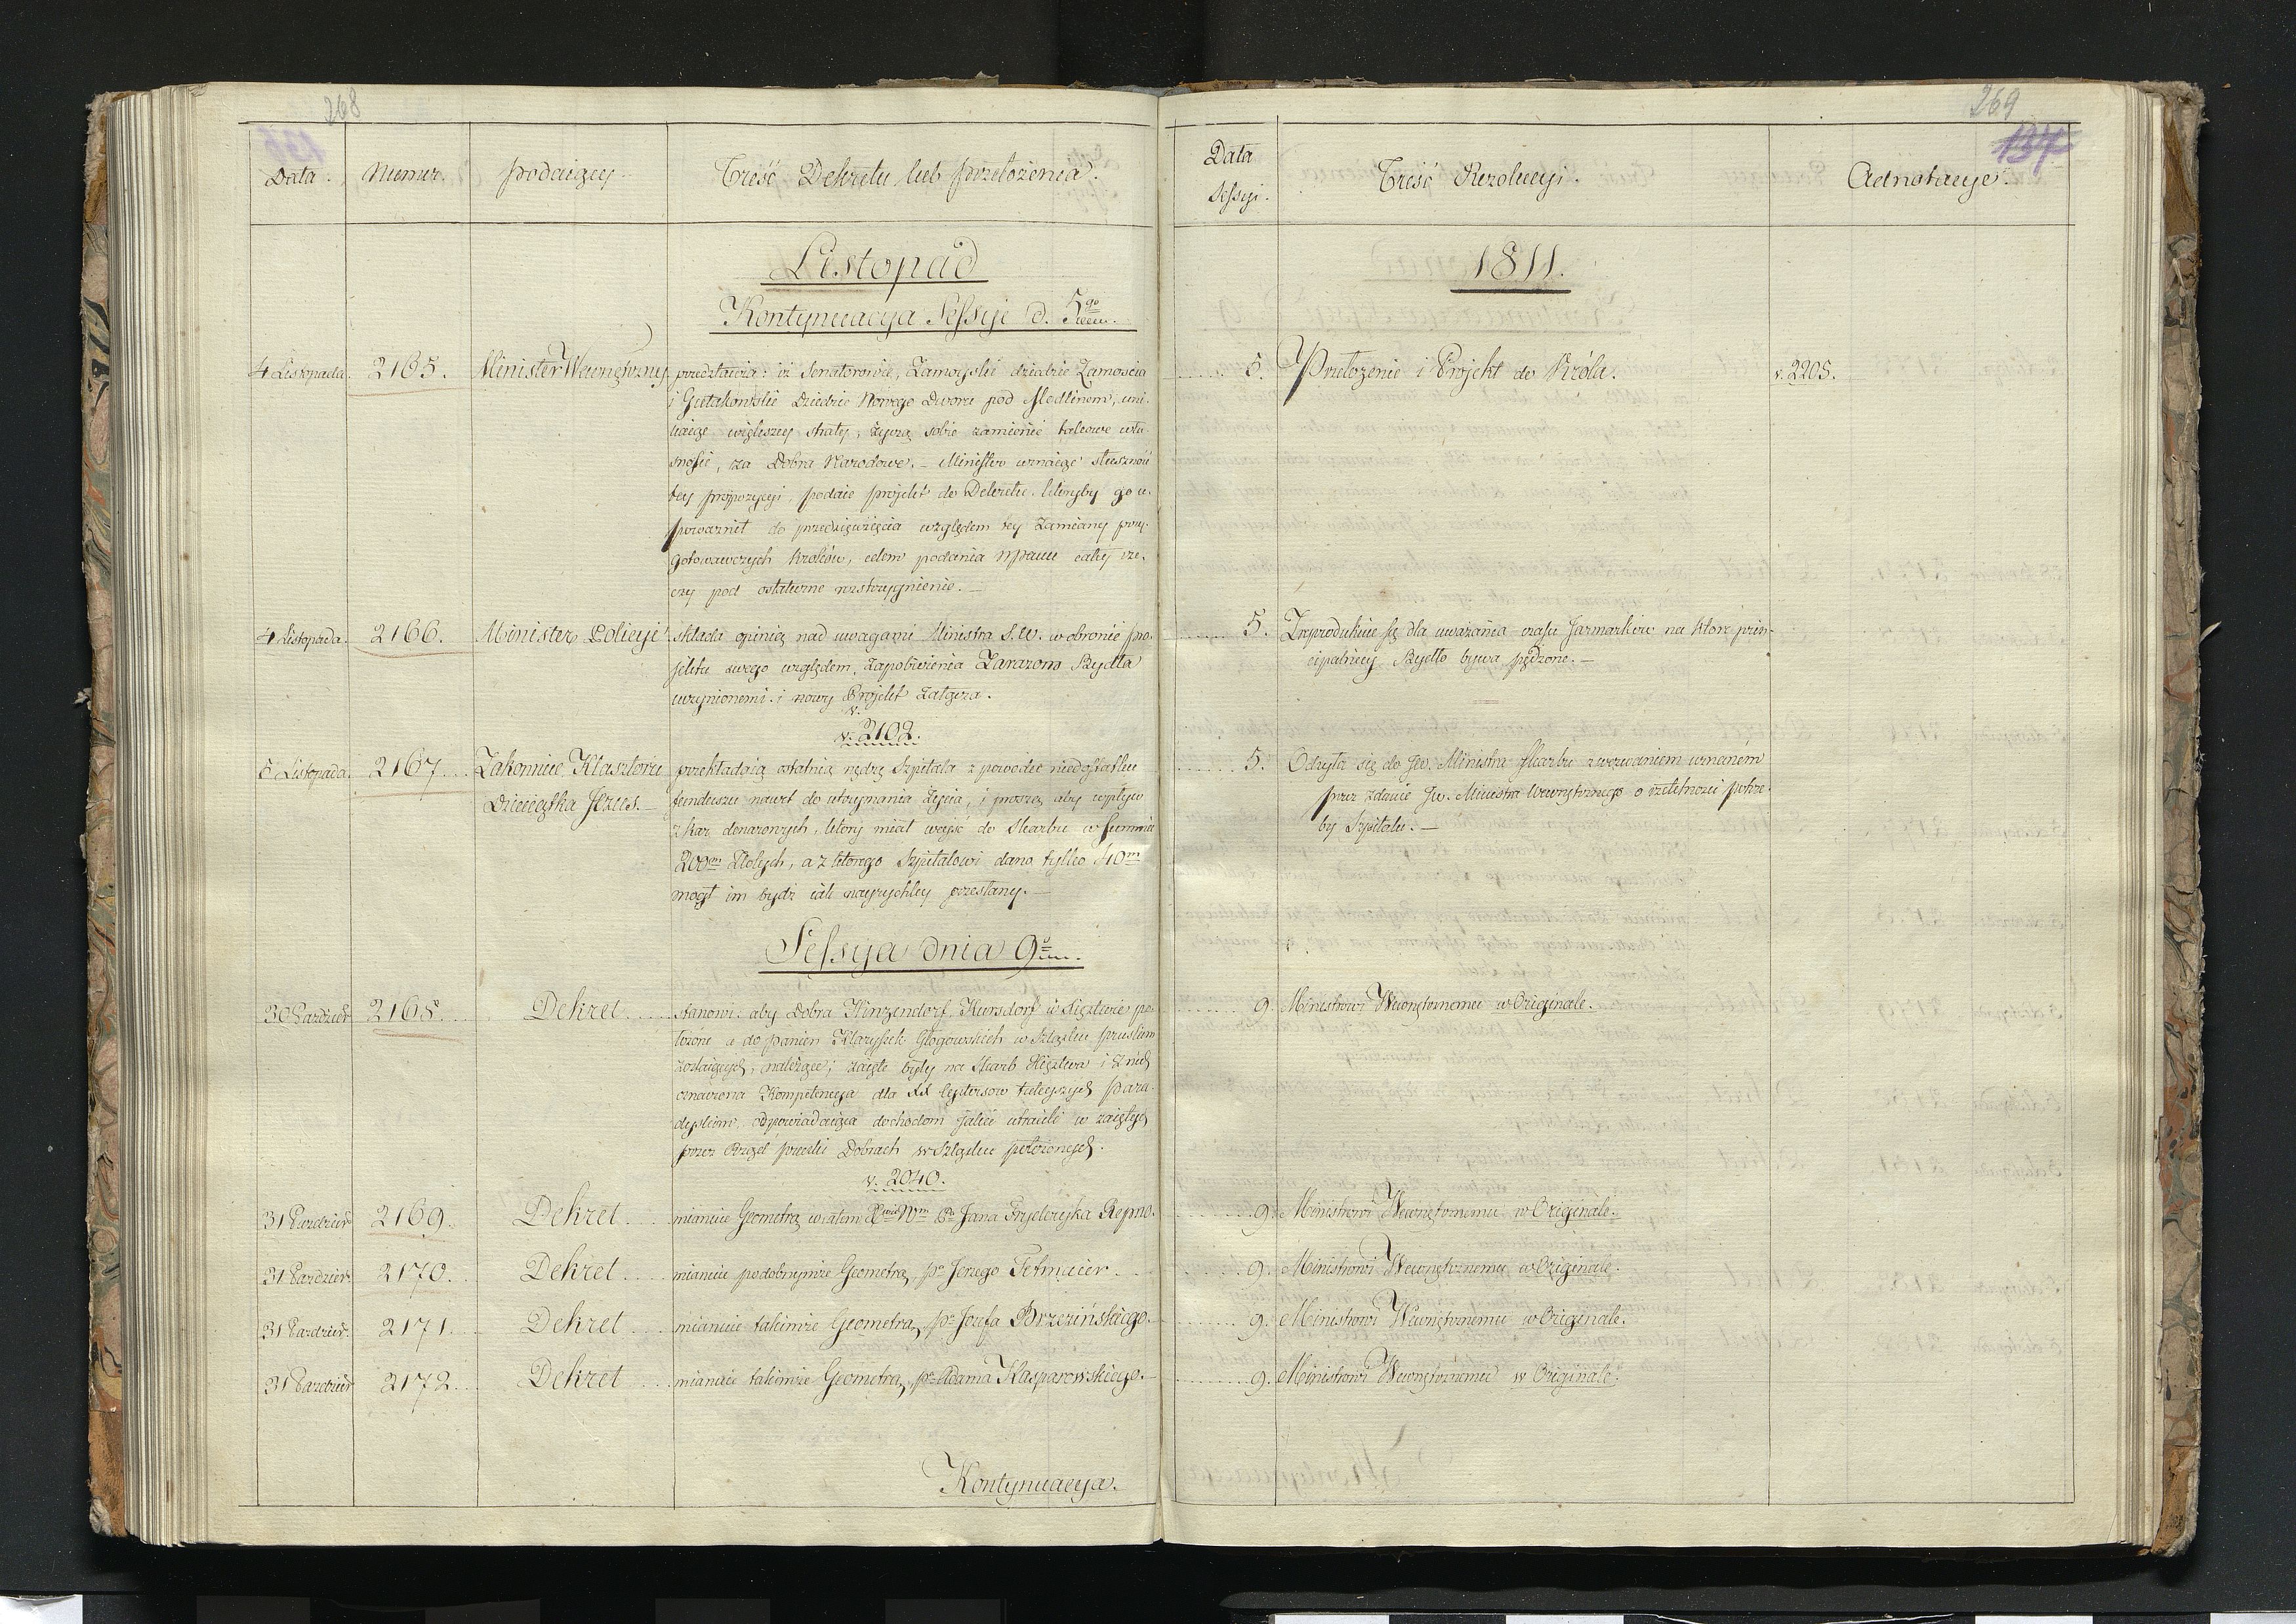 268
Data. Numer. podaiący Treść Dekretu lub przełożenia.
Listopad
Kontynuacya Sessyi d. 5go
4 Listopada. 2165. Minister Wewnętrzny przedstawia: iż Senatorowie, Zamoyski dziedzic Zamościa
i Gutakowski Dziedzic Nowego Dworu pod Modlinem, uni-
kaiąc większey straty, życzą sobie zamienić takowe wła-
sności, za Dobra Narodowe. – Minister uznaiąc słuszność
tey propozycyi, podaie projekt do Dekretu, któryby go u-
poważnił do przedsięwzięcia względem tey Zamiany przy-
gotowawczych kroków, celem podania NPanu całey rze-
czy pod ostateczne rozstrzygnienie. –
4 Listopada. 2166. Minister Policyi składa opinią nad uwagami Ministra S. W. w obronie pro-
jektu swego względem zapobieżenia Zarazom Bydła
uczynionemi i nowy Projekt załącza.
v. 2102.
5 Listopada. 2167. Zakonnice Klasztoru przekładaią ostatnią nędzę Szpitala z powodu niedostatku
Dzieciątka Jezus. – funduszu nawet do utrzymania życia, i proszą aby wpływ
z kar denarowych, który miał weyść do Skarbu w Summie
200m Złotych, a z którego Szpitalowi dano tylko 40m
mógł im bydź iak nayrychley przesłany. –
Sessya dnia 9o
30 Paździer. 2168. Dekret stanowi: aby Dobra Hinzendorf, Kursdorf w Xięztwie po-
łożone a do panien Klaryssek Głogowskich w Szląsku pruskim
zostaiących, należące; zaięte były na Skarb Xięztwa i z nich
oznaczona Kompetencya dla XX Cystersow tuteyszych Para-
dyskim, odpowiadaiąca dochodom jakie utracili w zaiętych
przez Rząd pruski Dobrach w Szląsku położonych.
v. 2040.
31 Paździer. 2169. Dekret mianuie Geometrą w całem Pa Jana Fryderyka Repno.
31 Paździer. 2170. Dekret mianuie podobnymże Geometrą, Pa Jerzego Tetmaier.
31 Paździer. 2171. Dekret mianuie takimże Geometrą, Pa Jozefa Brzezińskiego.
31 Paździer. 2172. Dekret mianuie takimże Geometrą, Pa Adama Kasparowskiego. –
Kontynuacya.
269
137
Data
Sessyi. Treść Rezolucyi. Adnotacye.
1811.
5. Przełożenie i Projekt do Króla. v. 2205.
5. Zreprodukuie się dla uważania czasu Jarmarków na które prin-
cipalniey Bydło bywa pędzone. –
5. Odsyła się do JW. Ministra Skarbu z wezwaniem uznaném
przez zdanie JW. Ministra Wewnętrznego o rzetelności potrze-
by Szpitalu. –
9. Ministrowi Wewnętrznemu w Originale.
9. Ministrowi Wewnętrznemu w Originale.
9. Ministrowi Wewnętrznemu w Originale.
9. Ministrowi Wewnętrznemu w Originale.
9. Ministrowi Wewnętrznemu w Originale.